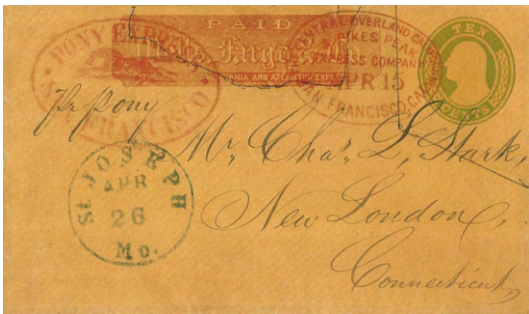 PAID
Wells, Fargo & Co.
CALIFORNIA AND ATLANTIC EXPRESS
PONY EXPRESS
SAN FRANCISCO
CENTRAL OVERLAND CALIFORNIA
PIKES PEAK
EXPRESS COMPANY
APR 15
SAN FRANCISCO, CAL
TEN
CENTS
Pr pony
St. JOSEPH
APR
26
Mo.
Mr. Chas. L. Stark,
New London,
Connecticut,